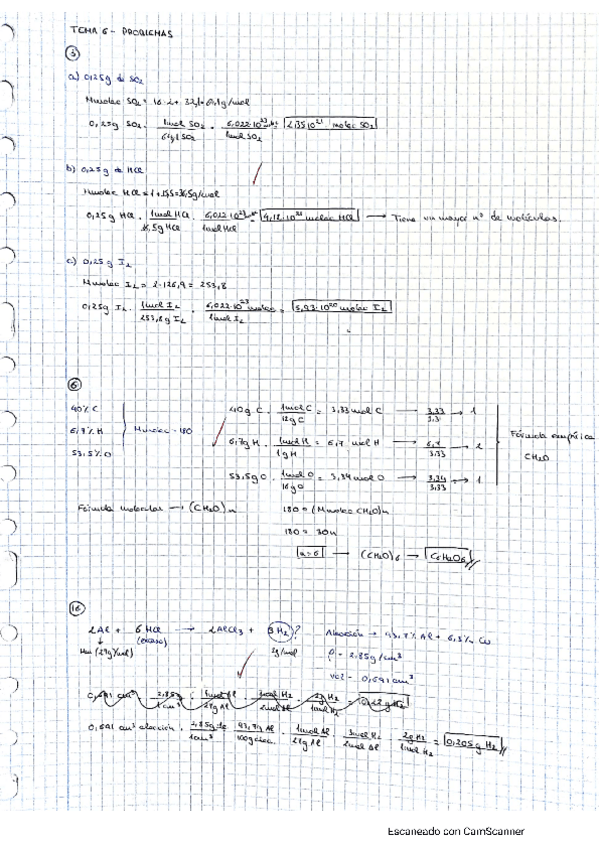 TEMA 6 - PROBLEMAS
3
a) 0,25g de SO2
Mmolec SO2 = 16·2 + 32,1 = 64,1 g/mol
0,25g SO2 · 1mol SO2 / 64,1 SO2 · 6,022·10^23 molec / 1mol SO2 = 2,35·10^21 molec SO2
b) 0,25g de HCl
Mmolec HCl = 1 + 35,5 = 36,5g/mol
0,25g HCl · 1mol HCl / 36,5g HCl · 6,022·10^23 / 1mol HCl = 4,12·10^21 molec HCl → Tiene un mayor nº de moléculas.
c) 0,25g I2
Mmolec I2 = 2·126,9 = 253,8
0,25g I2 · 1mol I2 / 253,8g I2 · 6,022·10^23 molec / 1mol I2 = 5,93·10^20 molec I2
6
40% C
6,7% H
53,5% O
Mmolec = 180
40g C · 1mol C / 12g C = 3,33 mol C → 3,33 / 3,3 → 1
6,7g H · 1mol H / 1g H = 6,7 mol H → 6,7 / 3,33 → 2
53,5g O · 1mol O / 16g O = 3,34 mol O → 3,34 / 3,33 → 1
Fórmula empírica
CH2O
Fórmula molecular → (CH2O)n
180 = (Mmolec CH2O)n
180 = 30n
n=6 → (CH2O)6 → C6H12O6
16
2Al + 6HCl → 2AlCl3 + 3H2?
(exceso)
2g/mol
Aleación → 93,7% Al + 6,3% Cu
ρ = 2,85g/cm3
vol = 0,691 cm3
0,691 cm3 · 2,85g / 1cm3 · 1mol Al / 27g Al · 3mol H2 / 2mol Al · 2g H2 / 1mol H2 =
0,691 cm3 aleación · 2,85g / 1cm3 · 93,7g Al / 100g · 1mol Al / 27g Al · 3mol H2 / 2mol Al · 2g H2 / 1mol H2 = 0,205g H2
Escaneado con CamScanner